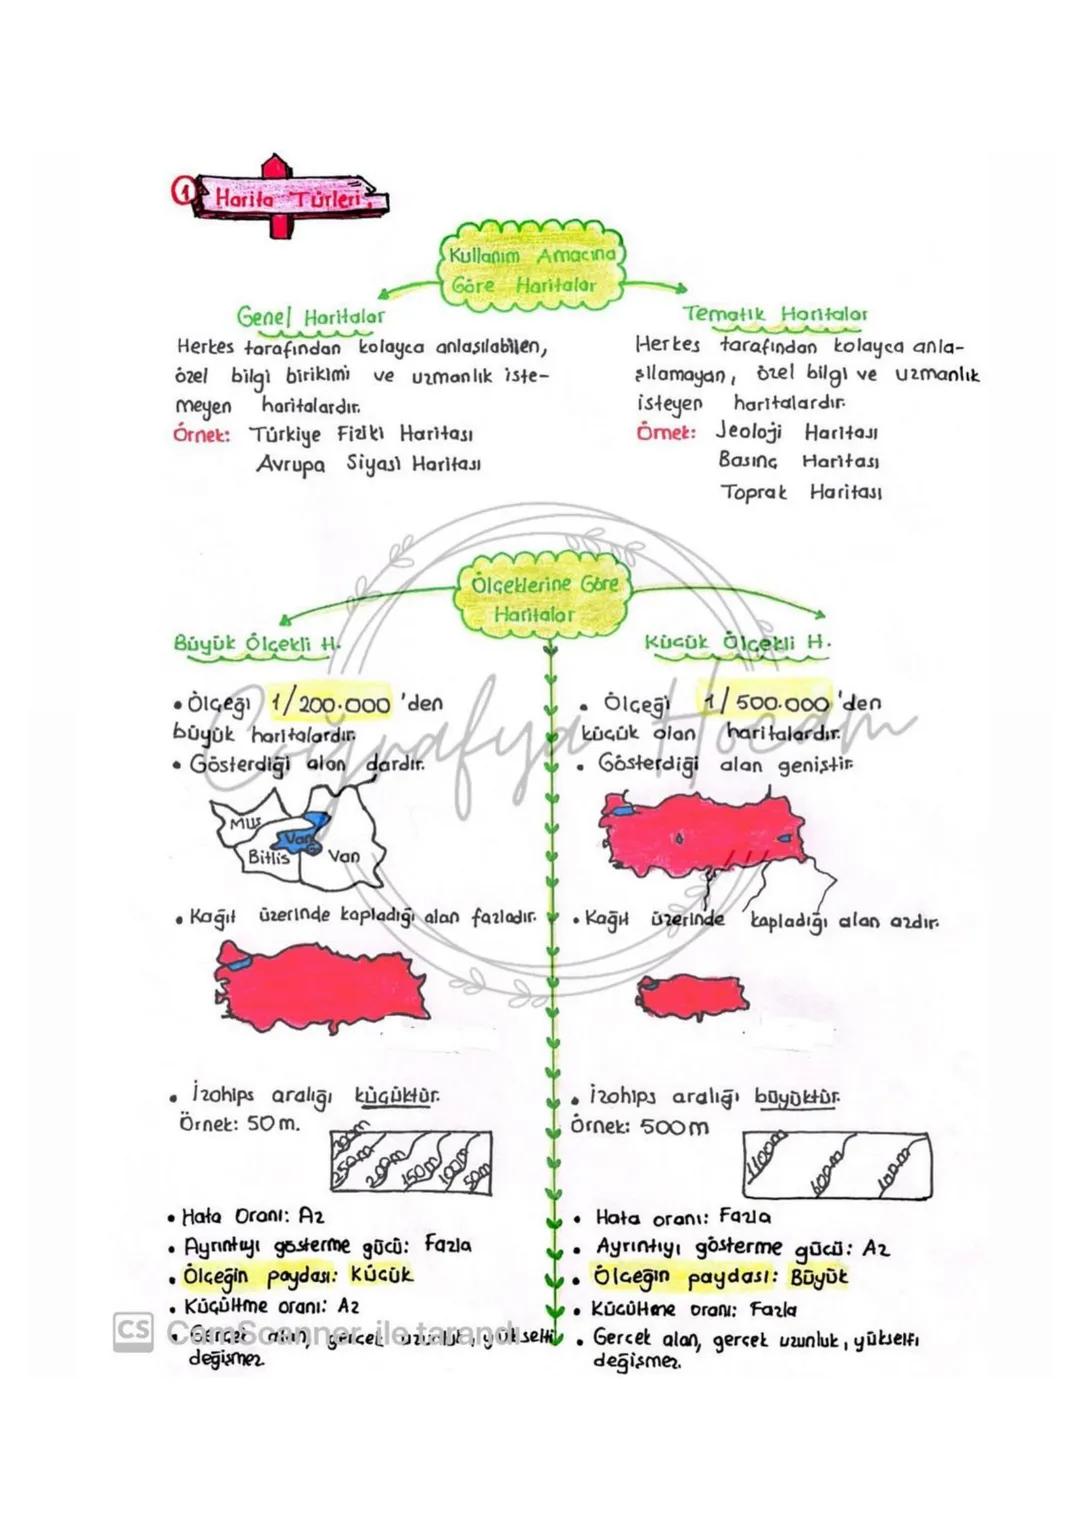 1 Harita Türleri
Kullanım Amacına
Göre Haritalar
Genel Haritalar
Herkes tarafından kolayca anlaşılabilen,
özel bilgi birikimi ve uzmanlık iste-
meyen haritalardır.
Örnek: Türkiye Fiziki Haritası
Avrupa Siyasi Haritası
Tematik Haritalar
Herkes tarafından kolayca anla-
şılamayan, özel bilgi ve uzmanlık
isteyen haritalardır.
Örnek: Jeoloji Haritası
Basınç Haritası
Toprak Haritası
Ölçeklerine Göre
Haritalar
Büyük Ölçekli H.
• Ölçeği 1/200.000 'den
büyük haritalardır.
• Gösterdiği alan dardır.
Muş
Bitlis
Van
Van
• Kağıt üzerinde kapladığı alan fazladır.
• İzohips aralığı küçüktür.
Örnek: 50 m.
300m
250m
200m
150m
100m
50m
• Hata Oranı: Az
• Ayrıntıyı gösterme gücü: Fazla
• Ölçeğin paydası: Küçük
• Küçültme oranı: Az
• Gerçek alan, gerçek uzunluk, yükselti
değişmez.
Küçük Ölçekli H.
• Ölçeği 1/500.000 'den
küçük olan haritalardır.
• Gösterdiği alan geniştir.
• Kağıt üzerinde kapladığı alan azdır.
• İzohips aralığı büyüktür.
Örnek: 500m
1100m
600m
100m
• Hata oranı: Fazla
• Ayrıntıyı gösterme gücü: Az
• Ölçeğin paydası: Büyük
• Küçültme oranı: Fazla
• Gerçek alan, gerçek uzunluk, yükselti
değişmez.
Coğrafya Hocam
CS CamScanner ile tarandı